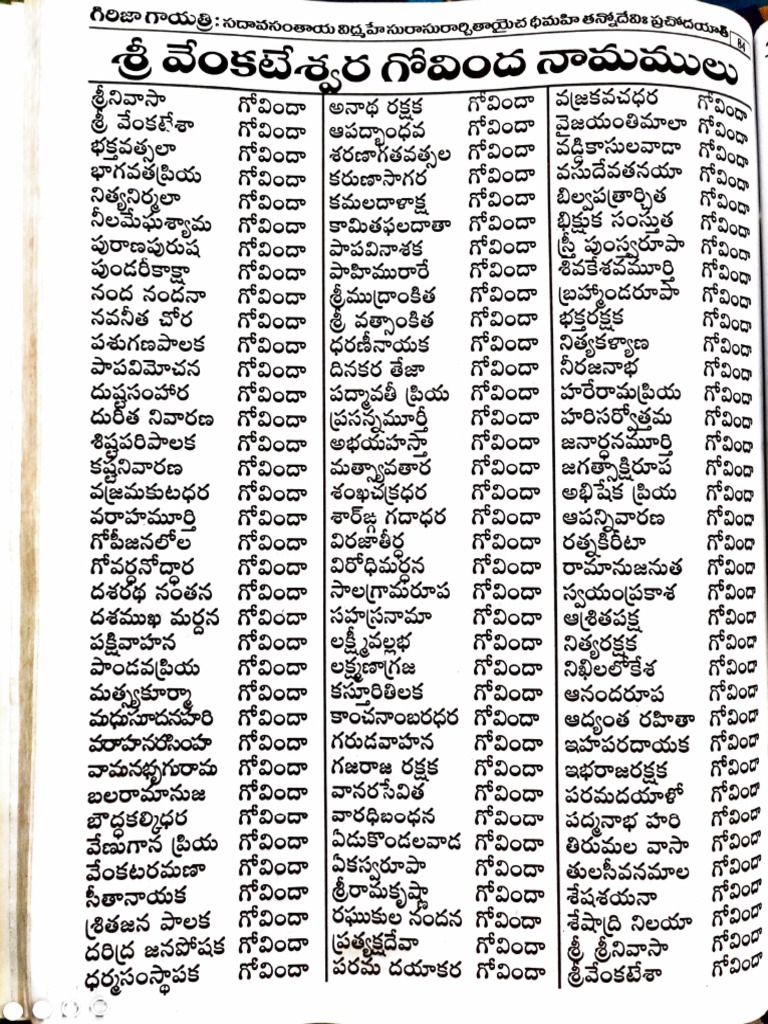 గిరిజా గాయత్రి : సదావసంతాయ విద్మహే సురాసురార్చితాయైచ ధీమహి తన్నోదేవిః ప్రచోదయాత్ 84
శ్రీ వేంకటేశ్వర గోవింద నామములు
శ్రీనివాసా గోవిందా
శ్రీ వేంకటేశా గోవిందా
భక్తవత్సలా గోవిందా
భాగవతప్రియ గోవిందా
నిత్యనిర్మలా గోవిందా
నీలమేఘశ్యామ గోవిందా
పురాణపురుష గోవిందా
పుండరీకాక్షా గోవిందా
నంద నందనా గోవిందా
నవనీత చోర గోవిందా
పశుగణపాలక గోవిందా
పాపవిమోచన గోవిందా
దుష్టసంహార గోవిందా
దురిత నివారణ గోవిందా
శిష్టపరిపాలక గోవిందా
కష్టనివారణ గోవిందా
వజ్రమకుటధర గోవిందా
వరాహమూర్తి గోవిందా
గోపీజనలోల గోవిందా
గోవర్ధనోద్ధార గోవిందా
దశరథ నంతన గోవిందా
దశముఖ మర్దన గోవిందా
పక్షివాహన గోవిందా
పాండవప్రియ గోవిందా
మత్స్యకూర్మా గోవిందా
మధుసూదనహరి గోవిందా
వరాహనరసింహ గోవిందా
వామనభృగురామ గోవిందా
బలరామానుజ గోవిందా
బౌద్ధకల్కిధర గోవిందా
వేణుగాన ప్రియ గోవిందా
వేంకటరమణా గోవిందా
సీతానాయక గోవిందా
శ్రితజన పాలక గోవిందా
దరిద్ర జనపోషక గోవిందా
ధర్మసంస్థాపక గోవిందా
అనాథ రక్షక గోవిందా
ఆపద్భాంధవ గోవిందా
శరణాగతవత్సల గోవిందా
కరుణాసాగర గోవిందా
కమలదాళాక్ష గోవిందా
కామితఫలదాతా గోవిందా
పాపవినాశక గోవిందా
పాహిమురారే గోవిందా
శ్రీముద్రాంకిత గోవిందా
శ్రీ వత్సాంకిత గోవిందా
ధరణీనాయక గోవిందా
దినకర తేజా గోవిందా
పద్మావతీ ప్రియ గోవిందా
ప్రసన్నమూర్తీ గోవిందా
అభయహస్తా గోవిందా
మత్స్యావతార గోవిందా
శంఖచక్రధర గోవిందా
శార్ఙ్గ గదాధర గోవిందా
విరజాతీర్థ గోవిందా
విరోధిమర్ధన గోవిందా
సాలగ్రామరూప గోవిందా
సహస్రనామా గోవిందా
లక్ష్మీవల్లభ గోవిందా
లక్ష్మణాగ్రజ గోవిందా
కస్తూరితిలక గోవిందా
కాంచనాంబరధర గోవిందా
గరుడవాహన గోవిందా
గజరాజ రక్షక గోవిందా
వానరసేవిత గోవిందా
వారధిబంధన గోవిందా
ఏడుకొండలవాడ గోవిందా
ఏకస్వరూపా గోవిందా
శ్రీరామకృష్ణా గోవిందా
రఘుకుల నందన గోవిందా
ప్రత్యక్షదేవా గోవిందా
పరమ దయాకర గోవిందా
వజ్రకవచధర గోవిందా
వైజయంతిమాలా గోవిందా
వడ్డికాసులవాడా గోవిందా
వసుదేవతనయా గోవిందా
బిల్వపత్రార్చిత గోవిందా
భిక్షుక సంస్తుత గోవిందా
స్త్రీ పుంస్వరూపా గోవిందా
శివకేశవమూర్తి గోవిందా
బ్రహ్మాండరూపా గోవిందా
భక్తరక్షక గోవిందా
నిత్యకళ్యాణ గోవిందా
నీరజనాభ గోవిందా
హరేరామప్రియ గోవిందా
హరిసర్వోత్తమ గోవిందా
జనార్ధనమూర్తి గోవిందా
జగత్సాక్షిరూప గోవిందా
అభిషేక ప్రియ గోవిందా
ఆపన్నివారణ గోవిందా
రత్నకిరీటా గోవిందా
రామానుజనుత గోవిందా
స్వయంప్రకాశ గోవిందా
ఆశ్రితపక్ష గోవిందా
నిత్యరక్షక గోవిందా
నిఖిలలోకేశ గోవిందా
ఆనందరూప గోవిందా
ఆద్యంత రహితా గోవిందా
ఇహపరదాయక గోవిందా
ఇభరాజరక్షక గోవిందా
పరమదయాళో గోవిందా
పద్మనాభ హరి గోవిందా
తిరుమల వాసా గోవిందా
తులసీవనమాల గోవిందా
శేషశయనా గోవిందా
శేషాద్రి నిలయా గోవిందా
శ్రీ శ్రీనివాసా గోవిందా
శ్రీవేంకటేశా గోవిందా